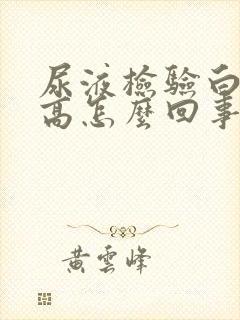 尿液檢驗白
高怎麼回事
黃雲峰